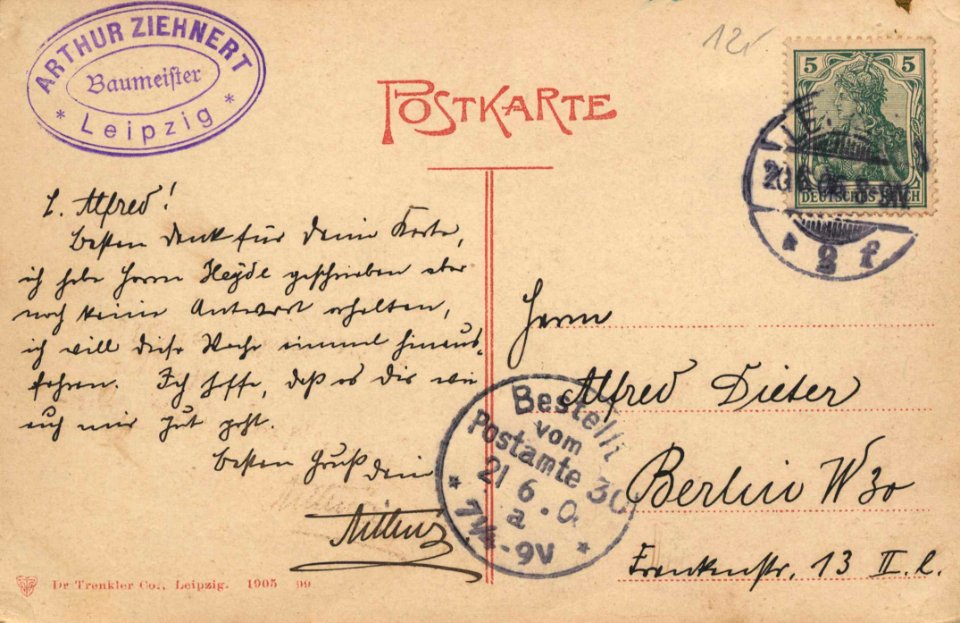 ARTHUR ZIEHNERT
Baumeister
* Leipzig *
12
POSTKARTE
5 5
DEUTSCHES REICH
20.6.05 8-9N
* 2 f
L. Alfred!
besten Dank für deine Karte,
ich habe Herrn Heydl geschrieben aber
noch keine Antwort erhalten,
ich will diese Woche einmal hinaus-
fahren. Ich hoffe, daß es dir wie
auch mir gut geht.
besten Gruß dein
Herrn
Alfred Dieter
Berlin W 30
Frankenstr. 13 II. l.
Bestellt
vom
Postamte 30
21 6. 0
a
* 7¼-9V *
Dr Trenkler Co., Leipzig. 1905 99